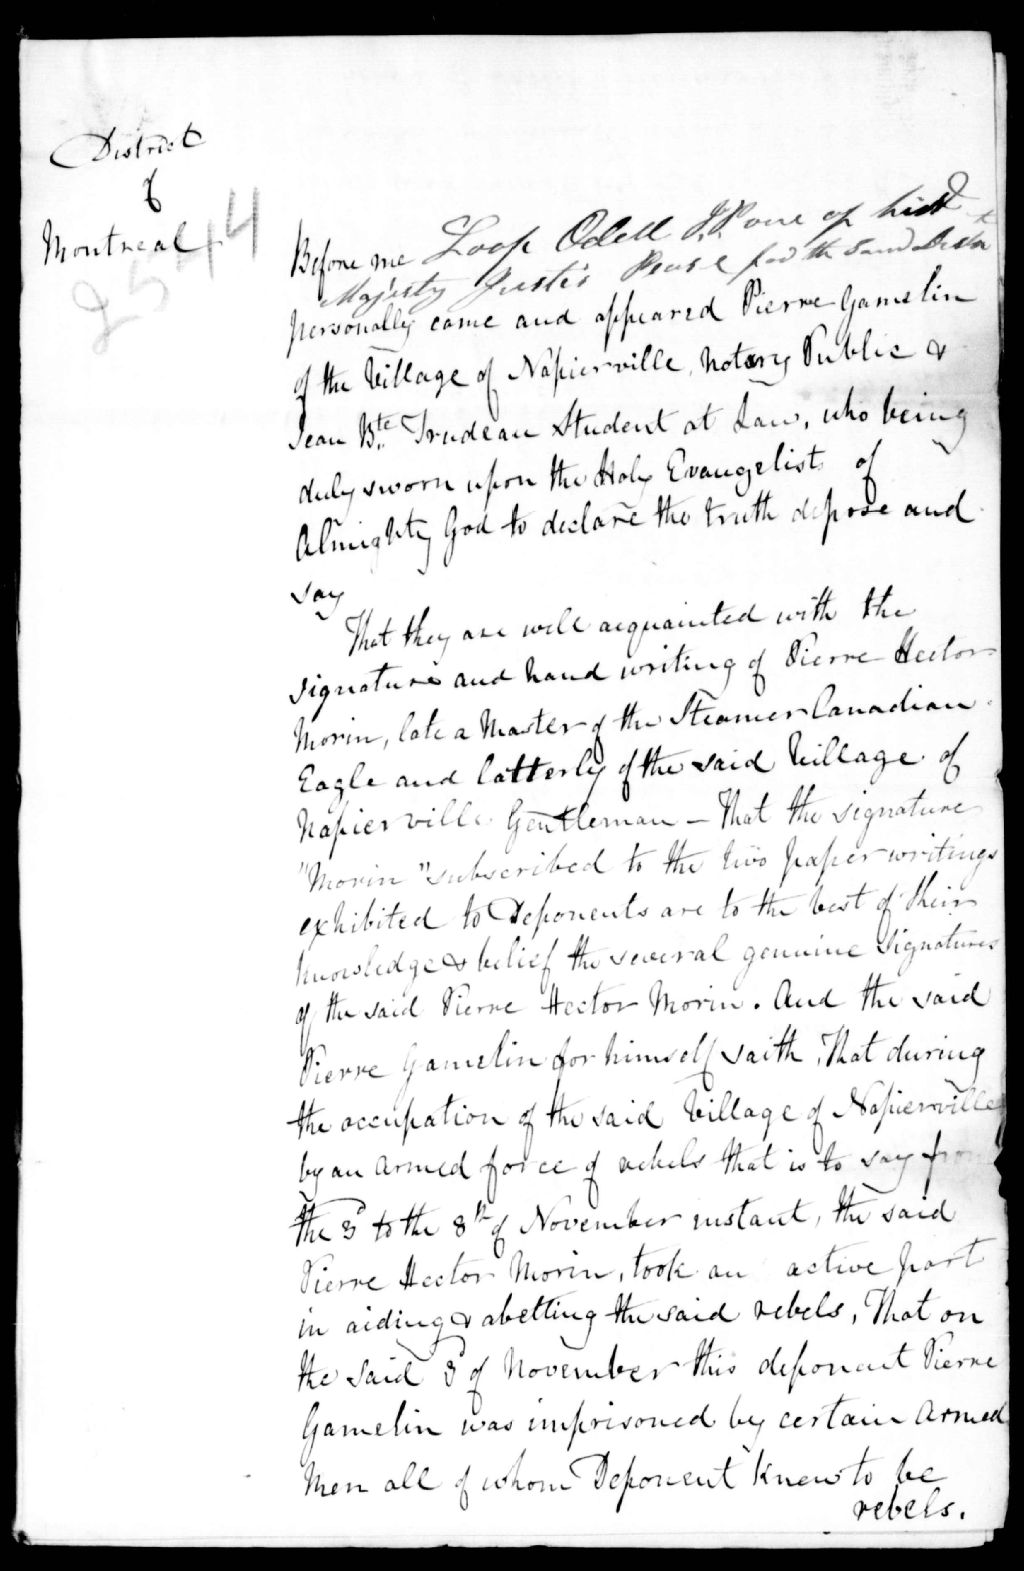 District
of
Montreal
2544
Before me Loop Odell J.P. one of hird
Majesty Justis Pease for the said Distn
personally came and appeared Pierre Gamelin
of the Village of Napierville, Notary Public &
Jean Bte. Trudeau Student at Law, who being
duly sworn upon the Holy Evangelists of
Almighty God to declare the truth depose and
say
That they are well acquainted with the
signature and hand writing of Pierre Hector
Morin, late a Master of the Steamer Canadian
Eagle and latterly of the said Village of
Napierville Gentleman - That the signature
"Morin" subscribed to the two paper writings
exhibited to Deponents are to the best of their
knowledge & belief the several genuine signatures
of the said Pierre Hector Morin. And the said
Pierre Gamelin for himself saith, That during
the occupation of the said Village of Napierville
by an armed force of rebels that is to say from
the 3d to the 8th of November instant, the said
Pierre Hector Morin, took an active part
in aiding & abetting the said rebels, That on
the said 3d of November this deponent Pierre
Gamelin was imprisoned by certain armed
men all of whom Deponent knew to be
rebels.